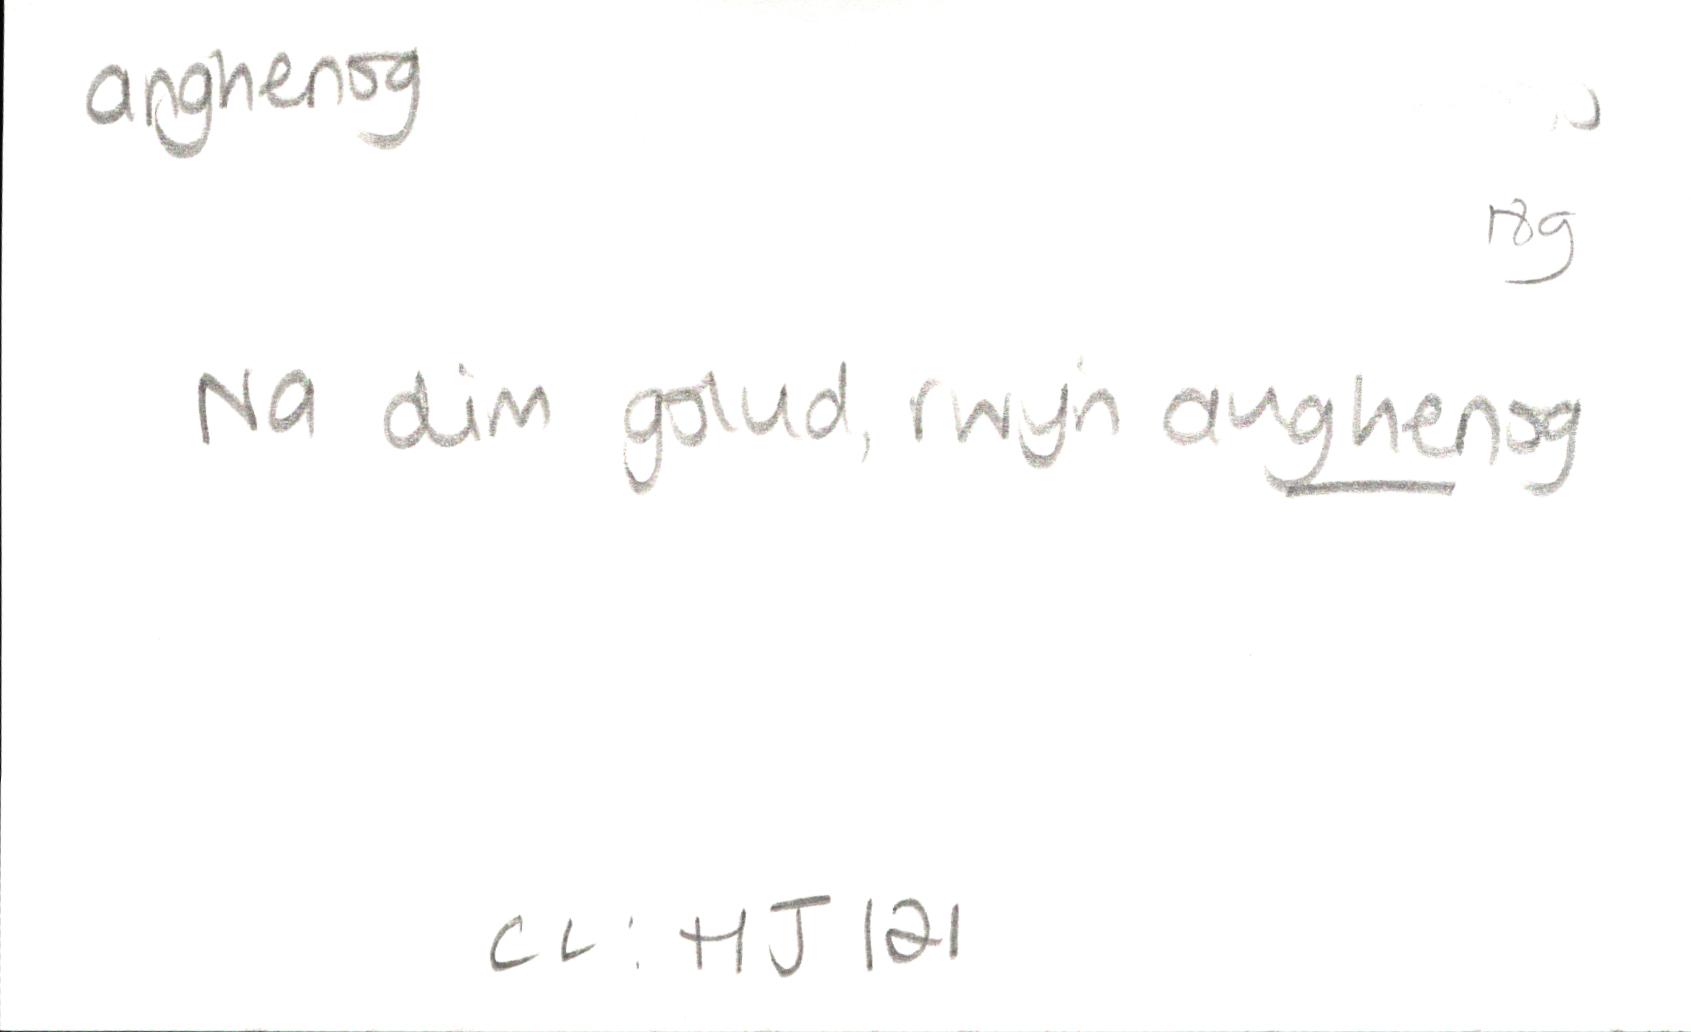 anghenog
18g
Na dim golud, rwy'n anghenog
CL: HJ 121